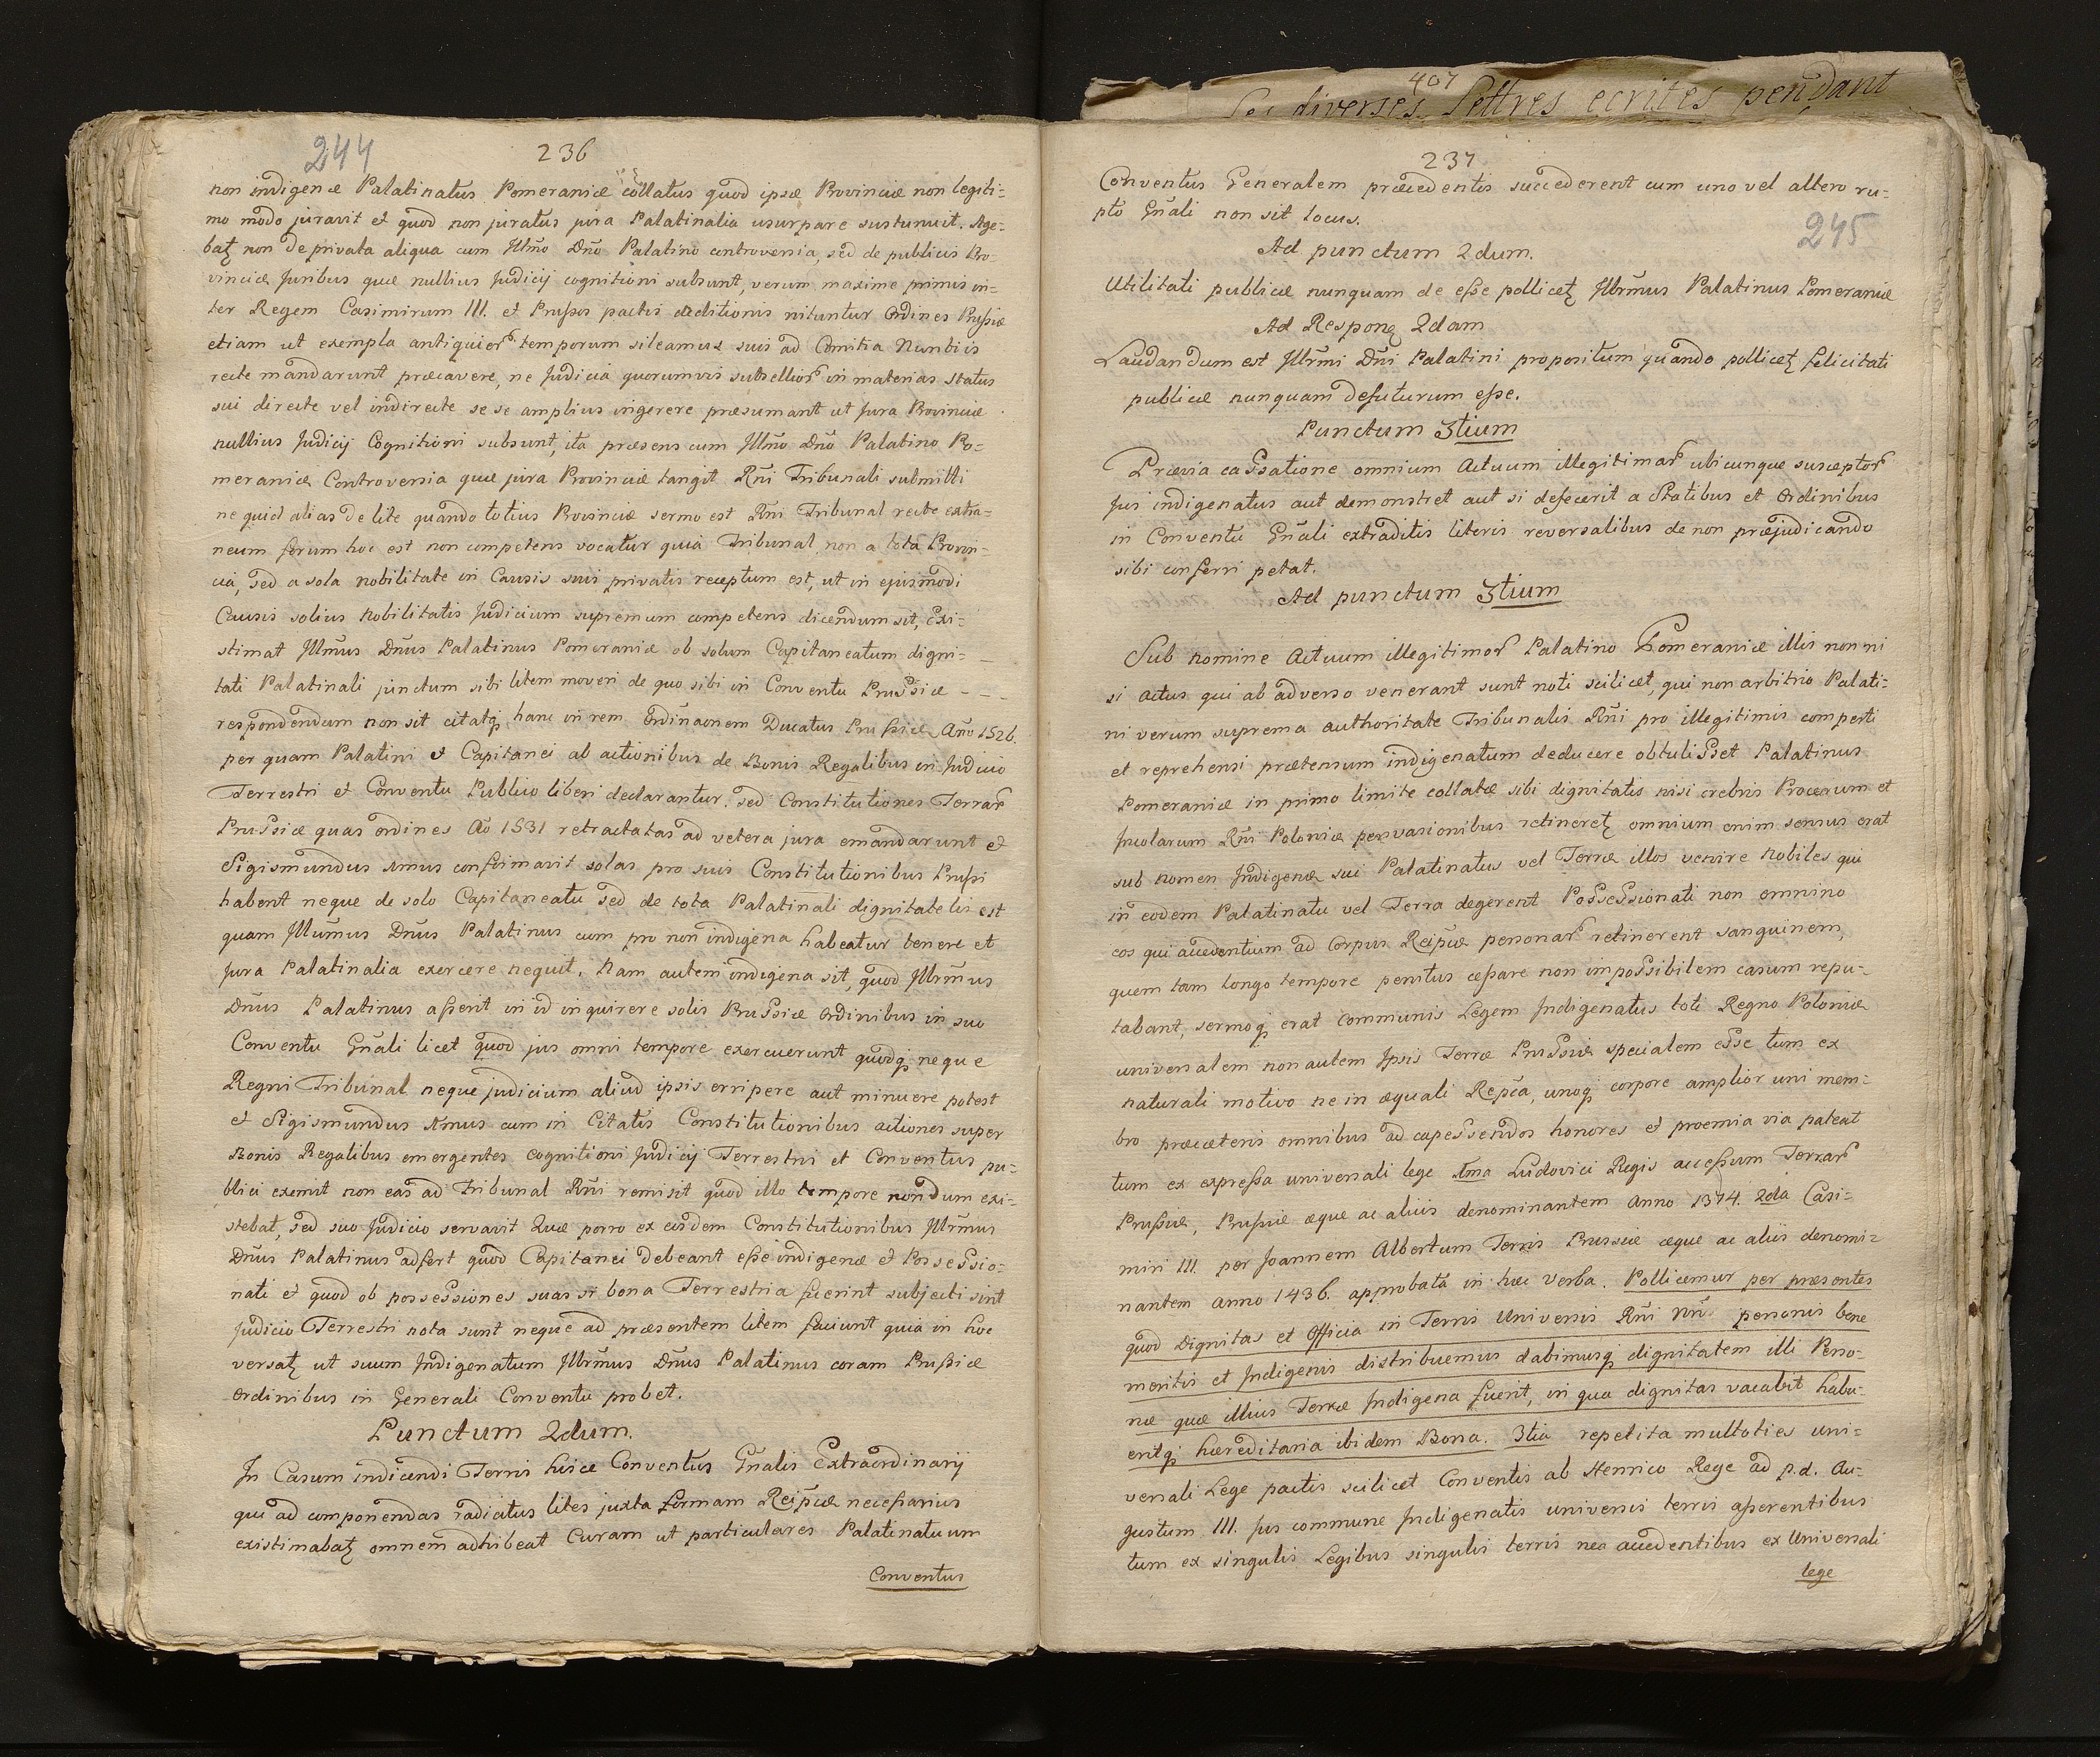 244
236
non indigenæ Palatinatus Pomeraniæ collatus quod ipsæ Provinciæ non legiti=
mo modo juravit et quod non juratus jura Palatinalia usurpare sustunuit. Age=
batʒ non de privata aliqua cum Jllmo Dño Palatino controversia, sed de publicis Pro=
vinciæ Juribus quæ nullius Judicij cognitioni subsunt, verum maxime primis in=
ter Regem Casimirum III. et Prussos pactis deditionis nituntur Ordines Prussiæ
etiam ut exempla antiquior temporum sileamus suis ad Comitia Nuntiis
recte mandarunt præcavere, ne Judicia quorumvis subsellior in materias Status
sui directe vel indirecte se se amplius ingerere præsumant ut Jura Provinciæ
nullius Judicij Cognitioni subsunt, ita præsens cum Jllmo Dño Palatino Po=
meraniæ Controversia quæ jura Provinciæ tangit Rñi Tribunali submitti
ne quid alias de lite quando totius Provinciæ sermo est Rñi Tribunal recte extra=
neum forum hoc est non competens vocatur quia Tribunal non a tota Provin=
cia, sed a sola nobilitate in Causis suis privatis receptum est, ut in ejusmodi
Causis solius Nobilitatis Judicium supremum competens dicendum sit, Exi=
stimat Jllmus Dñus Palatinus Pomeraniæ ob solum Capitaneatum digni= –
tati Palatinali junctum sibi litem moveri de quo sibi in Conventu Prussiæ – – –
respondendum non sit citatq hanc in rem Ordinaonem Ducatus Prussiæ Año 1526.
per quam Palatini et Capitanei ab actionibus de Bonis Regalibus in Judicio
Terrestri et Conventu Publico liberi declarantur. sed Constitutiones Terrar
Prussiæ quas ordines Ao 1531 retractatas ad vetera jura emandarunt et
Sigismundus Imus confirmavit solas pro suis Constitutionibus Prussi
habent neque de solo Capitaneatu sed de tota Palatinali dignitate lis est
quam Jllumus Dñus Palatinus cum pro non indigena habeatur tenere et
Jura Palatinalia exercere nequit. Nam autem indigena sit, quod Jllrmus
Dñus Palatinus asserit in id inquirere solis Prussiæ Ordinibus in suo
Conventu Gñali licet quod jus omni tempore exercuerunt quodq neque
Regni Tribunal neque judicium aliud ipsis erripere aut minuere potest
et Sigismundus Imus cum in Citatis Constitutionibus actiones super
Bonis Regalibus emergentes cognitioni Judicij Terrestri et Conventus pu=
blici exemit non eas ad Tribunal Rñi remisit quod illo tempore nondum exi=
stebat, sed suo Judicio servavit Quæ porro ex eisdem Constitutionibus Jllrmus
Dñus Palatinus adfert quod Capitanei debeant esse indigenæ et Possessio=
nati et quod ob possessiones suas si bona Terrestria fuerint subjecti sint
Judicio Terrestri nota sunt neque ad præsentem litem faciunt quia in hoc
versatʒ ut suum Indigenatum Jllrmus Dñus Palatinus coram Prussiæ
Ordinibus in Generali Conventu probet.
Punctum 2dum.
In Casum indicendi Terris hisce Conventus Gñalis Extraordinarij
qui ad componendas radicitus lites juxta formam Reipcæ necessarius
existimabatʒ omnem adhibeat Curam ut particulares Palatinatuum
Conventus
407
Les diverses Lettres ecrites pendant
237
245
Conventus Generalem præcedentis succederent cum uno vel altero ru=
pto Gñali non sit locus.
Ad punctum 2dum.
Utilitati publicæ nunquam de esse pollicetʒ Jllrmus Palatinus Pomeraniæ
Ad Responʒ 2dam
Laudandum est Jllrmi Dñi Palatini propositum quando pollicetʒ felicitati
publicæ nunquam defuturum esse.
Punctum 3tium
Prævia cassatione omnium Actuum illegitimar ubicunque susceptor
Jus indigenatus aut demonstret aut si defecerit a Statibus et Ordinibus
in Conventu Gñali extraditis literis reversalibus de non præjudicando
sibi conferri petat.
Ad punctum 3tium
Sub nomine Actuum illegitimor Palatino Pomeraniæ illis non ni
si actus qui ab adverso venerant sunt noti scilicet, qui non arbitrio Palati=
ni verum suprema authoritate Tribunalis Rñi pro illegitimis comperti
et reprehensi prætensum indigenatum deducere obtulisset Palatinus
Pomeraniæ in primo limite collatæ sibi dignitatis nisi crebris Procerum et
Incolarum Rñi Poloniæ persvasionibus retineretʒ omnium enim sensus erat
sub nomen Indigenæ sui Palatinatus vel Terræ illos venire Nobiles qui
in eodem Palatinatu vel Terra degerent Possessionati non omnino
eos qui accedentium ad Corpus Reipcæ personar retinerent sanguinem,
quem tam longo tempore penitus cessare non impossibilem casum repu=
tabant, sermoq erat communis Legem Indigenatus toti Regno Poloniæ
universalem non autem Ipsis Terræ Prussiæ specialem esse tum ex
naturali motivo ne in æquali Repca, unoq corpore amplior uni mem=
bro præcæteris omnibus ad capessendos honores et proemia via pateat
tum ex expressa universali lege Ima Ludovici Regis accessum Terrar
Prussiæ, Prussiæ æque ac aliis denominantem Anno 1374. 2da Casi=
miri III. per Joannem Albertum Terris Prussiæ æque ac aliis denomi=
nantem Anno 1436. approbata in hæc verba. Pollicemur per præsentes
quod Dignitas et Officia in Terris Universis Rñi Nñi personis bene
meritis et Indigenis distribuemus dabimusq dignitatem illi Perso=
næ quæ illius Terræ Indigena fuerit, in qua dignitas vacabit habu=
eritq hæreditaria ibidem Bona. 3tia repetita multoties uni=
versali Lege pactis scilicet Conventis ab Henrico Rege ad p.d. Au=
gustum III. Jus commune Indigenatis universis terris asserentibus
tum ex singulis Legibus singulis terris nea accedentibus ex Universali
lege